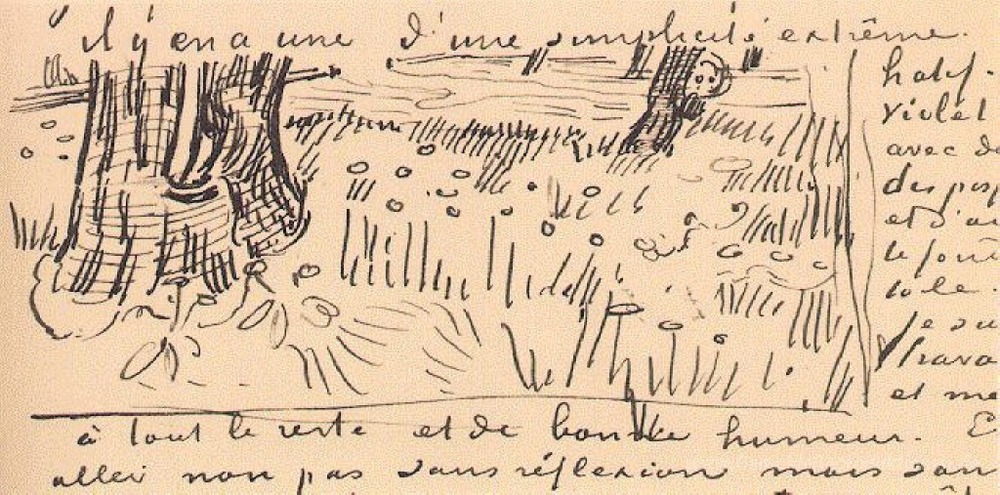 il y en a une d'une simplicité extrême.
half.
violet
avec
des
et d'au
le
toile.
je
trava
et me
à tout le reste et de bonne humeur. E
aller non pas sans réflexion mais san